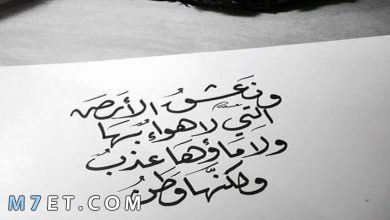 ونَعشقُ الأرضَ
التي لا هواءٌ بها
ولا ماؤها عذبُ
ولكنّها وطنُ
M7ET.COM